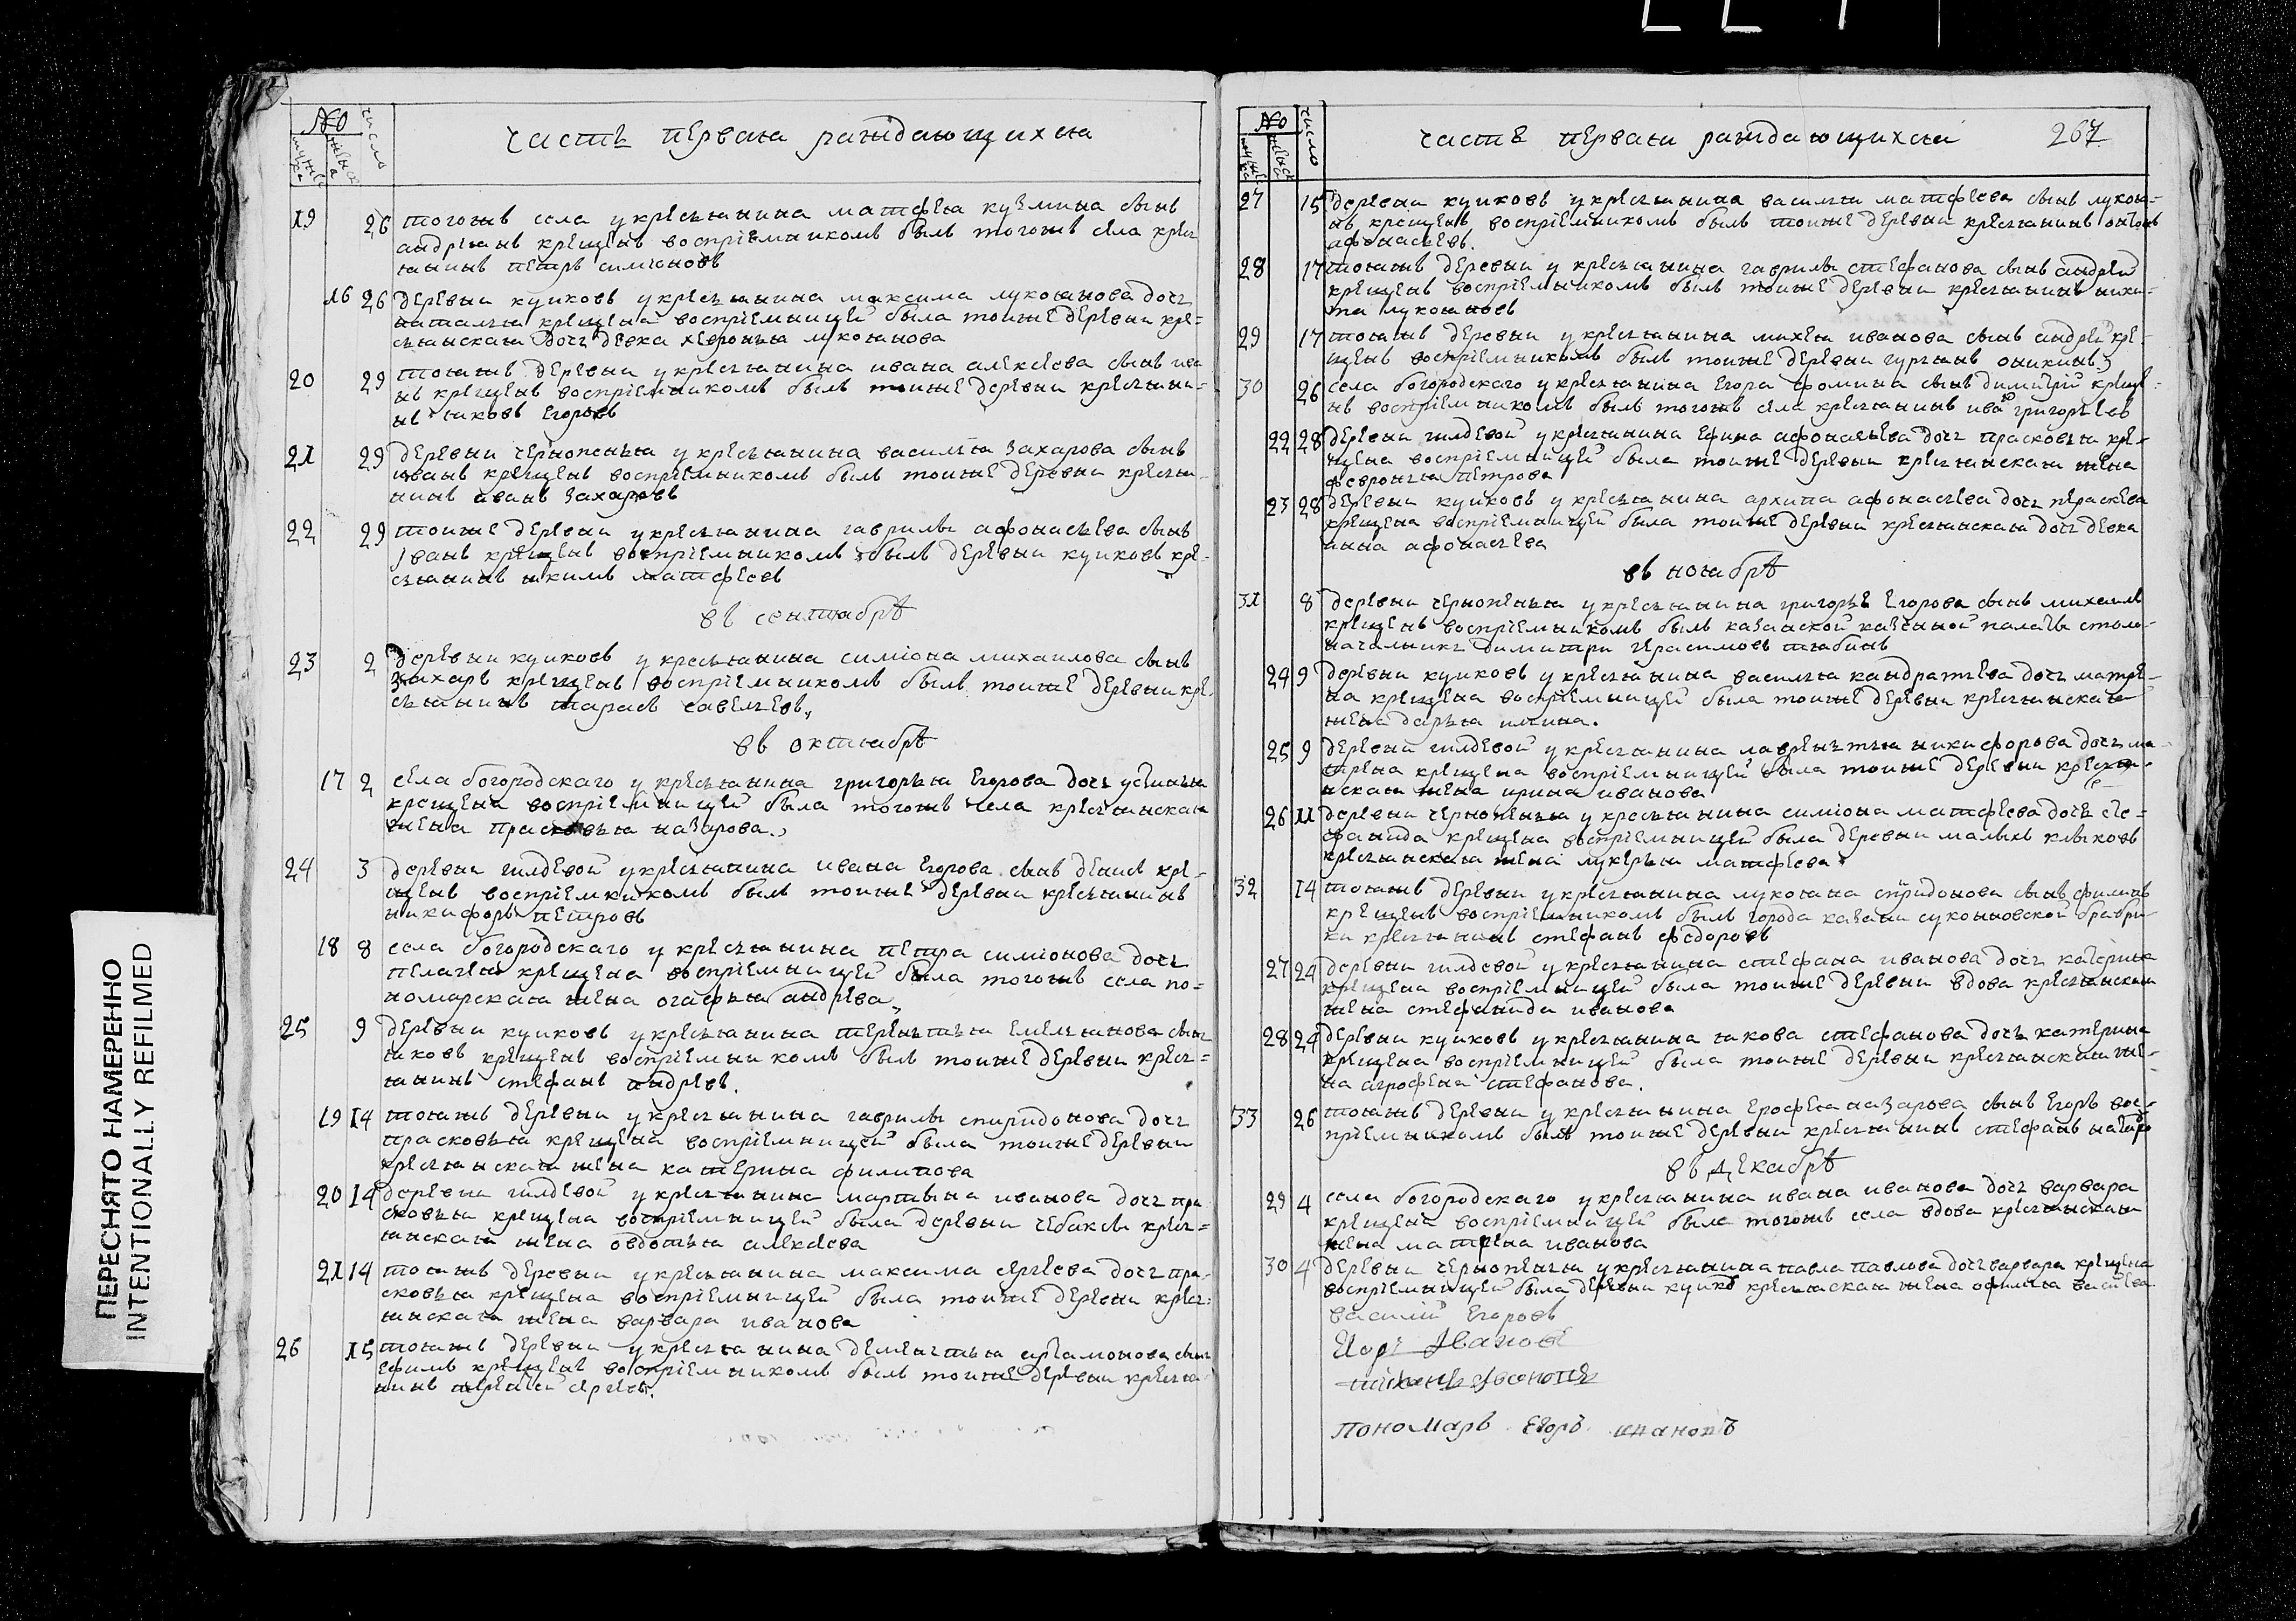 №
мужеска
женска
число
часть первая раждающихся
19 26 тогожъ села у крестьянина матфея кузмина сынъ
андреянъ крещенъ воспріемникомъ былъ тогожъ села крес
тьянинъ петръ симионовъ
16 26 деревни куиковъ у крестьянина максима лукоянова дочь
наталья крещена воспріемницей была тоиже деревни кре=
стьянская дочь девка хевронья лукоянова
20 29 тояжъ деревни у крестьянина ивана алексеева сынъ ива
нъ крещенъ воспріемникомъ былъ тоиже деревни крестьяни=
нъ яковъ егоровъ
21 29 деревни чернопенья у крестьянина василья захарова сынъ
иванъ крещенъ воспріемникомъ былъ тоиже деревни крестья
нинъ иванъ захаровъ
22 29 тоиже деревни у крестьянина гаврилы афонасьева сынъ
Іванъ крещенъ воспріемникомъ былъ деревни куиковъ кре=
стьянинъ якимъ матфеевъ
въ сентябрѣ
23 2 деревни куиковъ у крестьянина симіона михаилова сынъ
захаръ крещенъ воспріемникомъ былъ тоиже деревни кре
стьянинъ тарасъ савельевъ
въ октябрѣ
17 2 села богородскаго у крестьянина григорья егорова дочь устинья
крещена воспріемницей была тогожъ села крестьянская
жена прасковья назарова
24 3 деревни гилдевой у крестьянина ивана егорова сынъ денис кре=
щенъ воспріемникомъ былъ тоиже деревни крестьянинъ
никифоръ петровъ
18 8 села богородскаго у крестьянина петра симионова дочь
пелагея крещена воспріемницей была тогожъ села по=
номарская жена огафья андрева
25 9 деревни куиковъ у крестьянина терентья емельянова сынъ
яковъ крещенъ воспріемникомъ былъ тоиже деревни крест=
тьянинъ стефанъ андревъ.
19 14 тояжъ деревни у крестьянина гаврилы спиридонова дочь
прасковья крещена воспріемницей была тоиже деревни
крестьянская жена катерина филипова
20 14 деревни гилдевой у крестьянина мартына иванова дочь пра
сковья крещена воспріемницей была деревни чебаксы крест=
тьянская жена овдотья алексеева
21 14 тояжъ деревни у крестьянина максима сергеева дочь пра
сковья крещена воспріемницей была тоиже деревни крест=
тьянская жена варвара иванова
26 15 тояжъ деревни у крестьянина дементья артамонова сынъ
ефимъ крещенъ воспріемникомъ былъ тоиже деревни крестья
нинъ сергеевъ.
№
мужеска
женска
число
часть первая раждающихся 267
27 15 деревни куиковъ у крестьянина василья матфеева сынъ лукоя=
нъ крещенъ воспріемникомъ былъ тоиже деревни крестьянинъ антонъ
афонасьевъ.
28 17 тояжъ деревни у крестьянина гаврилы стефанова сынъ андрей
крещенъ воспріемникомъ былъ тоиже деревни крестьянинъ ники=
та лукояновъ
29 17 тояжъ деревни у крестьянина михея иванова сынъ андрей кре=
щенъ воспріемникомъ былъ тоиже деревни гурьянъ оникинъ
30 26 села богородскаго у крестьянина егора фомина сынъ димитрій креще=
нъ воспріемникомъ былъ тогожъ села крестьянинъ иванъ григорьевъ
22 28 деревни гилдевой у крестьянина ефима афонасьева дочь прасковья кре=
щена воспріемницей была тоиже деревни крестьянская жена
февронья петрова
23 28 деревни куиковъ у крестьянина архипа афонасьева дочь параскева
крещена воспріемницей была тоиже деревни крестьянская дочь девка
анна афонасьева
въ ноябрѣ
31 8 деревни чернопенья у крестьянина григорья егорова сынъ михаилъ
крещенъ воспріемникомъ былъ казанской казенной палаты столо=
начальникъ димитри герасимовъ тябинъ
24 9 деревни куиковъ у крестьянина василья кандратьева дочь матре=
на крещена воспріемницей была тоиже деревни крестьянская
жена дарья илина.
25 9 деревни гилдевой у крестьянина лаврентья никифорова дочь ма
трена крещена воспріемницей была тоиже деревни крестья=
нская жена ирина иванова
26 11 деревни чернопенья у крестьянина симіона матфеева дочь сте=
фанида крещена воспріемницей была деревни малыхъ клыковъ
крестьянская жена лукерья матфеева
32 14 тояжъ деревни у крестьянина лукояна спиридонова сынъ филипъ
крещенъ воспріемникомъ былъ города казани суконновской фабри=
ки крестьянинъ стефанъ федоровъ
27 24 деревни гилдевой у крестьянина стефана иванова дочь катерина
крещена воспріемницей была тоиже деревни вдова крестьянская
жена стефанида иванова
28 24 деревни куиковъ у крестьянина якова стефанова дочь катерина
крещена воспріемницей была тоиже деревни крестьянская же=
на агрофена стефанова.
33 26 тояжъ деревни у крестьянина ерофея назарова сынъ егоръ вос=
пріемникомъ былъ тоиже деревни крестьянинъ стефанъ назаро
въ декабрѣ
29 4 села богородскаго у крестьянина ивана иванова дочь варвара
крещена воспріемницей была тогожъ села вдова крестьянская
жена матрена иванова
30 4 деревни чернопенья у крестьянина павла павлова дочь варвара крещена
воспріемницей была деревни куико крестьянская жена офимья
василій егоровъ
Егоръ Ивановъ
пономарь Егоръ ивановъ
ПЕРЕСНЯТО НАМЕРЕННО
INTENTIONALLY REFILMED